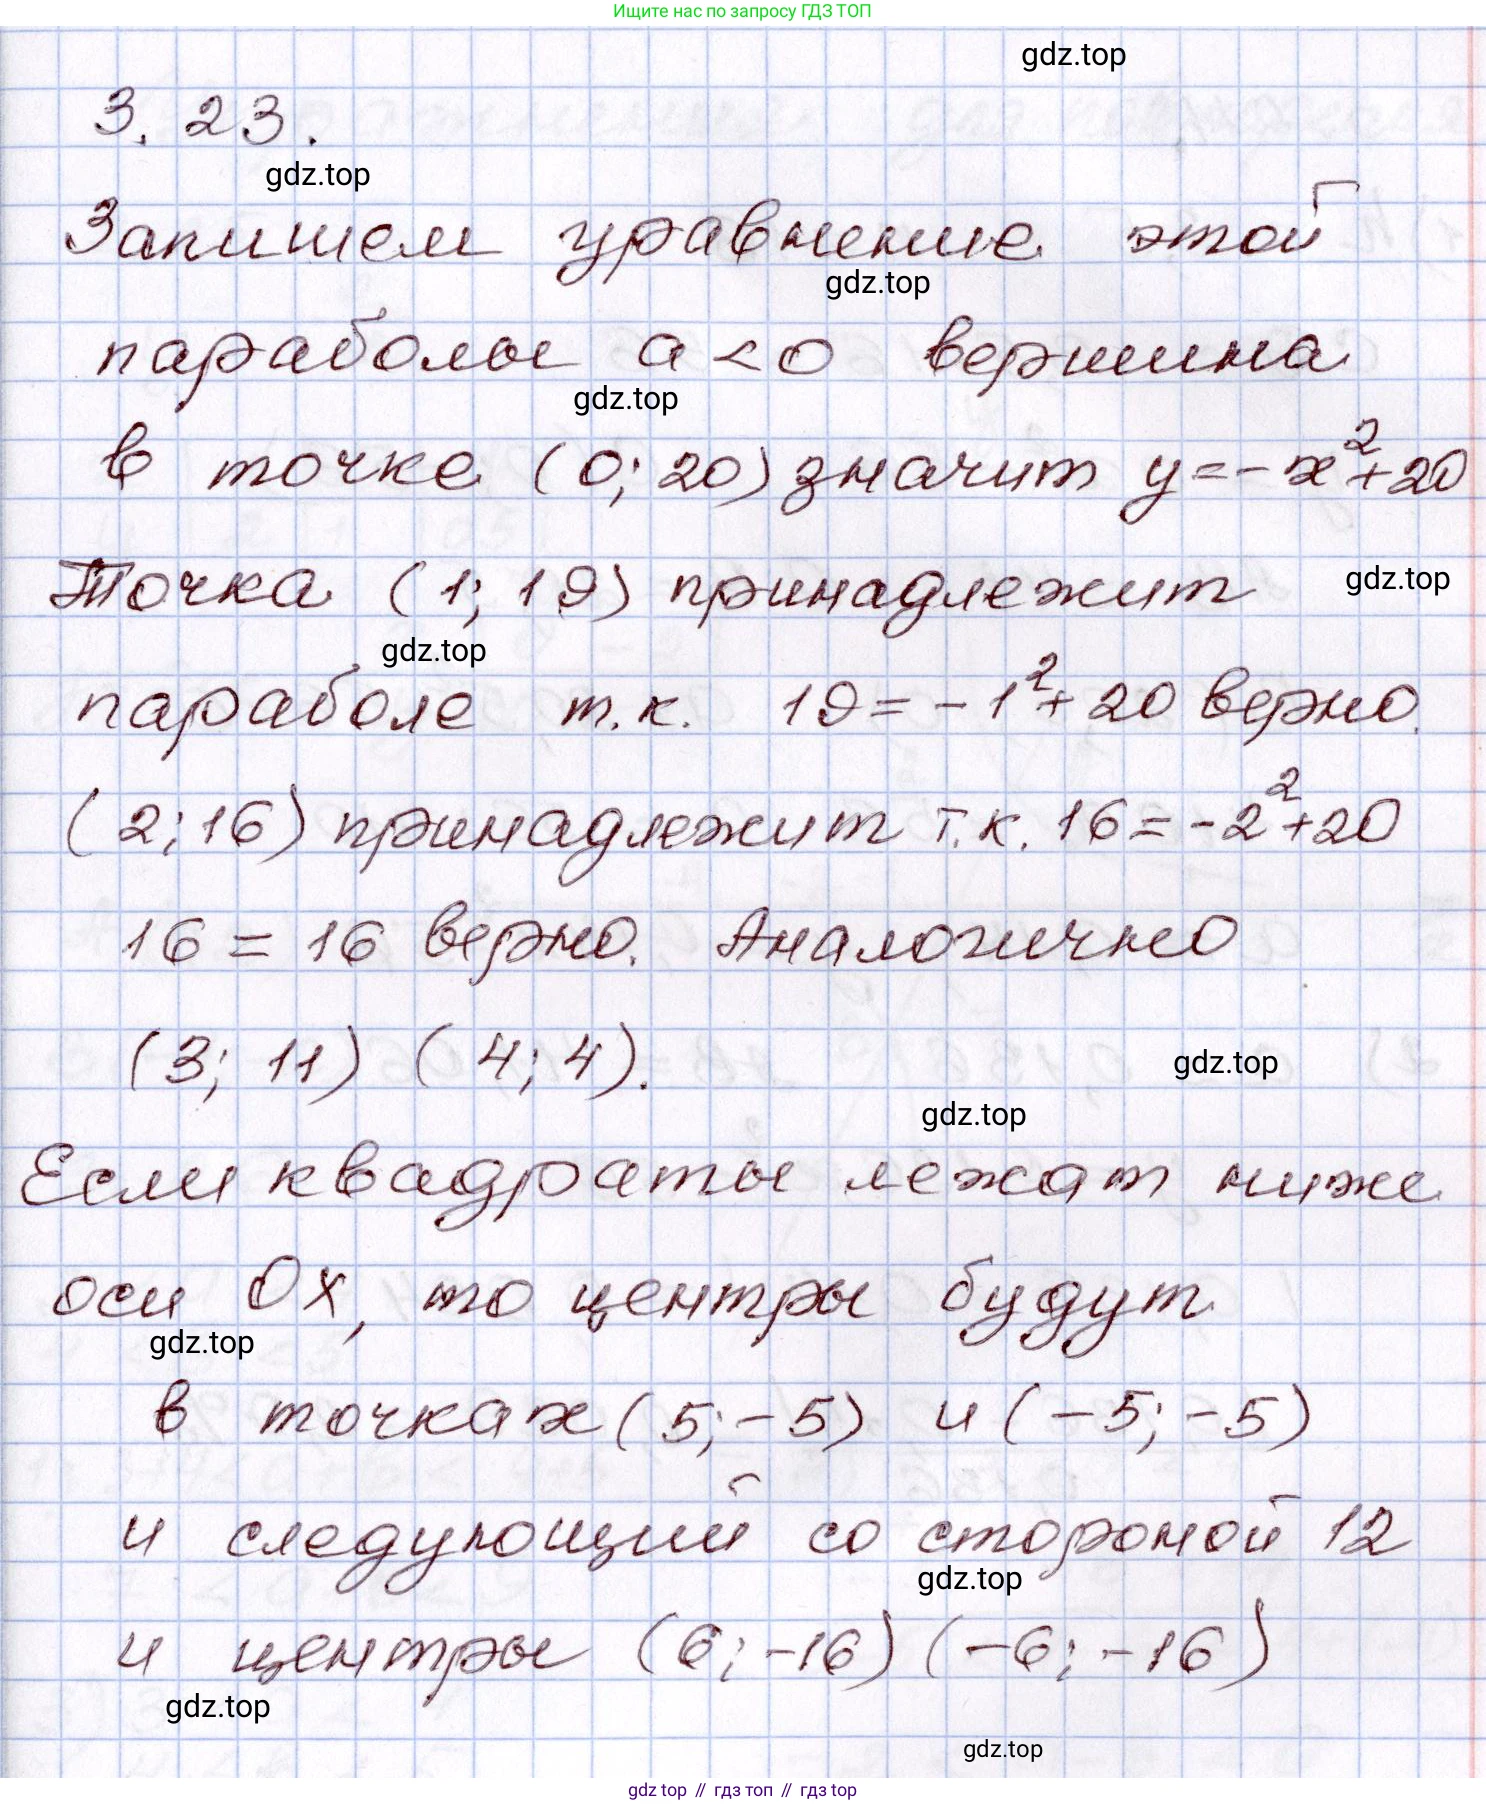 Ищите нас по запросу ГДЗ ТОП
gdz.top
3.23.
gdz.top
Запишем уравнение этой
gdz.top
параболы a<0 вершина
gdz.top
в точке (0; 20) значит y=-x²+20
Точка (1; 19) принадлежит
gdz.top
gdz.top
параболе т.к. 19=-1²+20 верно.
(2;16) принадлежит т.к. 16=-2²+20
16=16 верно. Аналогично
(3; 11) (4;4).
gdz.top
gdz.top
Если квадраты лежат ниже
оси Ox, то центры будут
gdz.top
в точках (5;-5) и (-5;-5)
и следующий со стороной 12
gdz.top
и центры (6;-16) (-6;-16)
gdz.top
gdz.top
gdz top // гдз топ // gdz.top